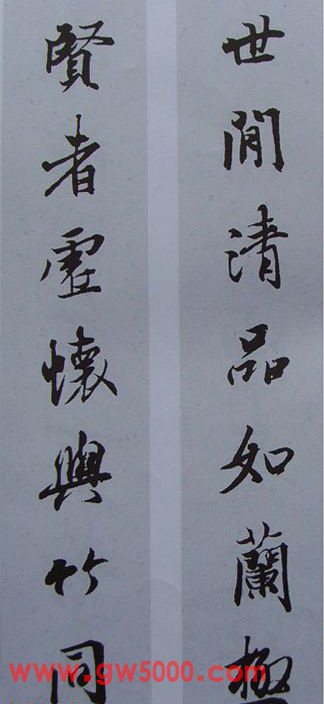 世間清品如蘭極
賢者虛懷與竹同
www.gw5000.com